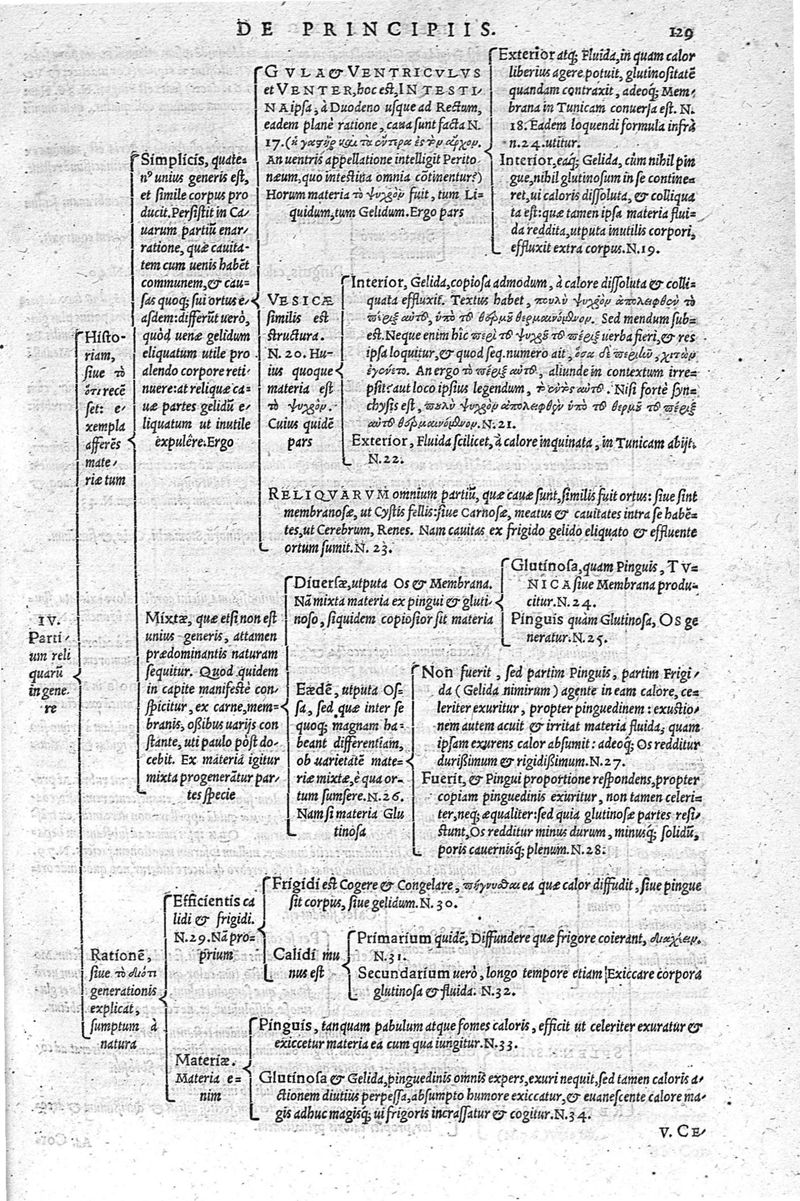 DE PRINCIPIIS.
129
IV.
Parti-
um reli
quarũ
in gene-
re
Histo-
riam,
siue τὸ
ὅτι recẽ
set: e-
xempla
afferẽs
mate-
riæ tum
Simplicis, quate-
nꝰ unius generis est,
et simile corpus pro
ducit. Persistit in Ca
uarum partiũ enar-
ratione, quæ cauita-
tem cum uenis habẽt
communem, & cau-
sas quoq; sui ortus e-
asdem: differũt uerò,
quòd uenæ gelidum
eliquatum utile pro
alendo corpore reti
nuere: at reliquæ ca-
uæ partes gelidũ e-
liquatum ut inutile
expulêre. Ergo
GVLA & VENTRICVLVS
et VENTER, hoc est, INTESTI-
NA ipsa, à Duodeno usque ad Rectum,
eadem planè ratione, caua sunt facta N.
17.
An uentris appellatione intelligit Perito
næum, quo intestina omnia cõtinentur?)
Horum materia τὸ ψυχρὸν fuit, tum Li-
quidum, tum Gelidum. Ergo pars
Exterior atq; Fluida, in quam calor
liberius agere potuit, glutinositatẽ
quandam contraxit, adeoq; Mem-
brana in Tunicam conuersa est. N.
18. Eadem loquendi formula infrà
n. 24. utitur.
Interior, eaq; Gelida, cùm nihil pin
gue, nihil glutinosum in se contine-
ret, ui caloris dissoluta, & colliqua
ta est: quæ tamen ipsa materia flui-
da reddita, utputa inutilis corpori,
effluxit extra corpus. N. 19.
VESICÆ
similis est
structura.
N. 20. Hu-
ius quoque
materia est
τὸ ψυχρὸν.
Cuius quidẽ
pars
Interior, Gelida, copiosa admodum, à calore dissoluta & colli-
quata effluxit. Textus habet, πουλὺ ψυχρὸν ἀπολειφθὲν τὸ
πέριξ αὐτοῦ, ὑπὸ τοῦ θερμοῦ θερμαινόμενον. Sed mendum sub-
est. Neque enim hîc περὶ τοῦ ψυχροῦ τοῦ πέριξ uerba fieri, & res
ipsa loquitur, & quod seq. numero ait,
ἐγένετο. An ergo τὸ πέριξ αὐτοῦ, aliunde in contextum irre-
psit: aut loco ipsius legendum, Nisi fortè syn-
chysis est, πουλὺ ψυχρὸν ἀπολειφθὲν ὑπὸ τοῦ θερμοῦ τοῦ πέριξ
αὐτοῦ θερμαινόμενον. N. 21.
Exterior, Fluida scilicet, à calore inquinata, in Tunicam abijt.
N. 22.
RELIQVARVM omnium partiũ, quæ cauæ sunt, similis fuit ortus: siue sint
membranosæ, ut Cystis fellis: siue Carnosæ, meatus & cauitates intra se habẽ-
tes, ut Cerebrum, Renes. Nam cauitas ex frigido gelido eliquato & effluente
ortum sumit. N. 23.
Mixtæ, quæ etsi non est
unius generis, attamen
prædominantis naturam
sequitur. Quod quidem
in capite manifestè con-
spicitur, ex carne, mem-
branis, oßibus uarijs con
stante, uti paulo pòst do-
cebit. Ex materia igitur
mixta progenerãtur par-
tes specie
Diuersæ, utputa Os & Membrana.
Nã mixta materia ex pingui & gluti-
noso, siquidem copiosior sit materia
Glutinosa, quam Pinguis, TV-
NICA siue Membrana produ-
citur. N. 24.
Pinguis quàm Glutinosa, Os ge
neratur. N. 25.
Eædẽ, utputa Os-
sa, sed quæ inter se
quoq; magnam ha-
beant differentiam,
ob uarietatẽ mate-
riæ mixtæ, è qua or-
tum sumsere. N. 26.
Nam si materia Glu
tinosa
Non fuerit, sed partim Pinguis, partim Frigi-
da (Gelida nimirum) agente in eam calore, ce-
leriter exuritur, propter pinguedinem: exustio-
nem autem acuit & irritat materia fluida, quam
ipsam exurens calor absumit: adeoq; Os redditur
durißimum & rigidißimum. N. 27.
Fuerit, & Pingui proportione respondens, propter
copiam pinguedinis exuritur, non tamen celeri-
ter, neq; æqualiter: sed quia glutinosæ partes resi-
stunt, Os redditur minus durum, minusq; solidũ,
poris cauernisq; plenum. N. 28.
Rationẽ,
siue τὸ διότι
generationis
explicat,
sumptum à
natura
Efficientis ca
lidi & frigidi.
N. 29. Nã pro-
prium
Frigidi est Cogere & Congelare, πηγνύσθαι ea quæ calor diffudit, siue pingue
sit corpus, siue gelidum. N. 30.
Calidi mu
nus est
Primarium quidẽ, Diffundere quæ frigore coierant, διαχέειν.
N. 31.
Secundarium uerò, longo tempore etiam Exiccare corpora
glutinosa & fluida. N. 32.
Materiæ.
Materia e-
nim
Pinguis, tanquam pabulum atque fomes caloris, efficit ut celeriter exuratur &
exiccetur materia ea cum qua iungitur. N. 33.
Glutinosa & Gelida, pinguedinis omnis expers, exuri nequit, sed tamen caloris a-
ctionem diutius perpessa, absumpto humore exiccatur, & euanescente calore ma-
gis adhuc magisq; ui frigoris incrassatur & cogitur. N. 34.
V. CE-